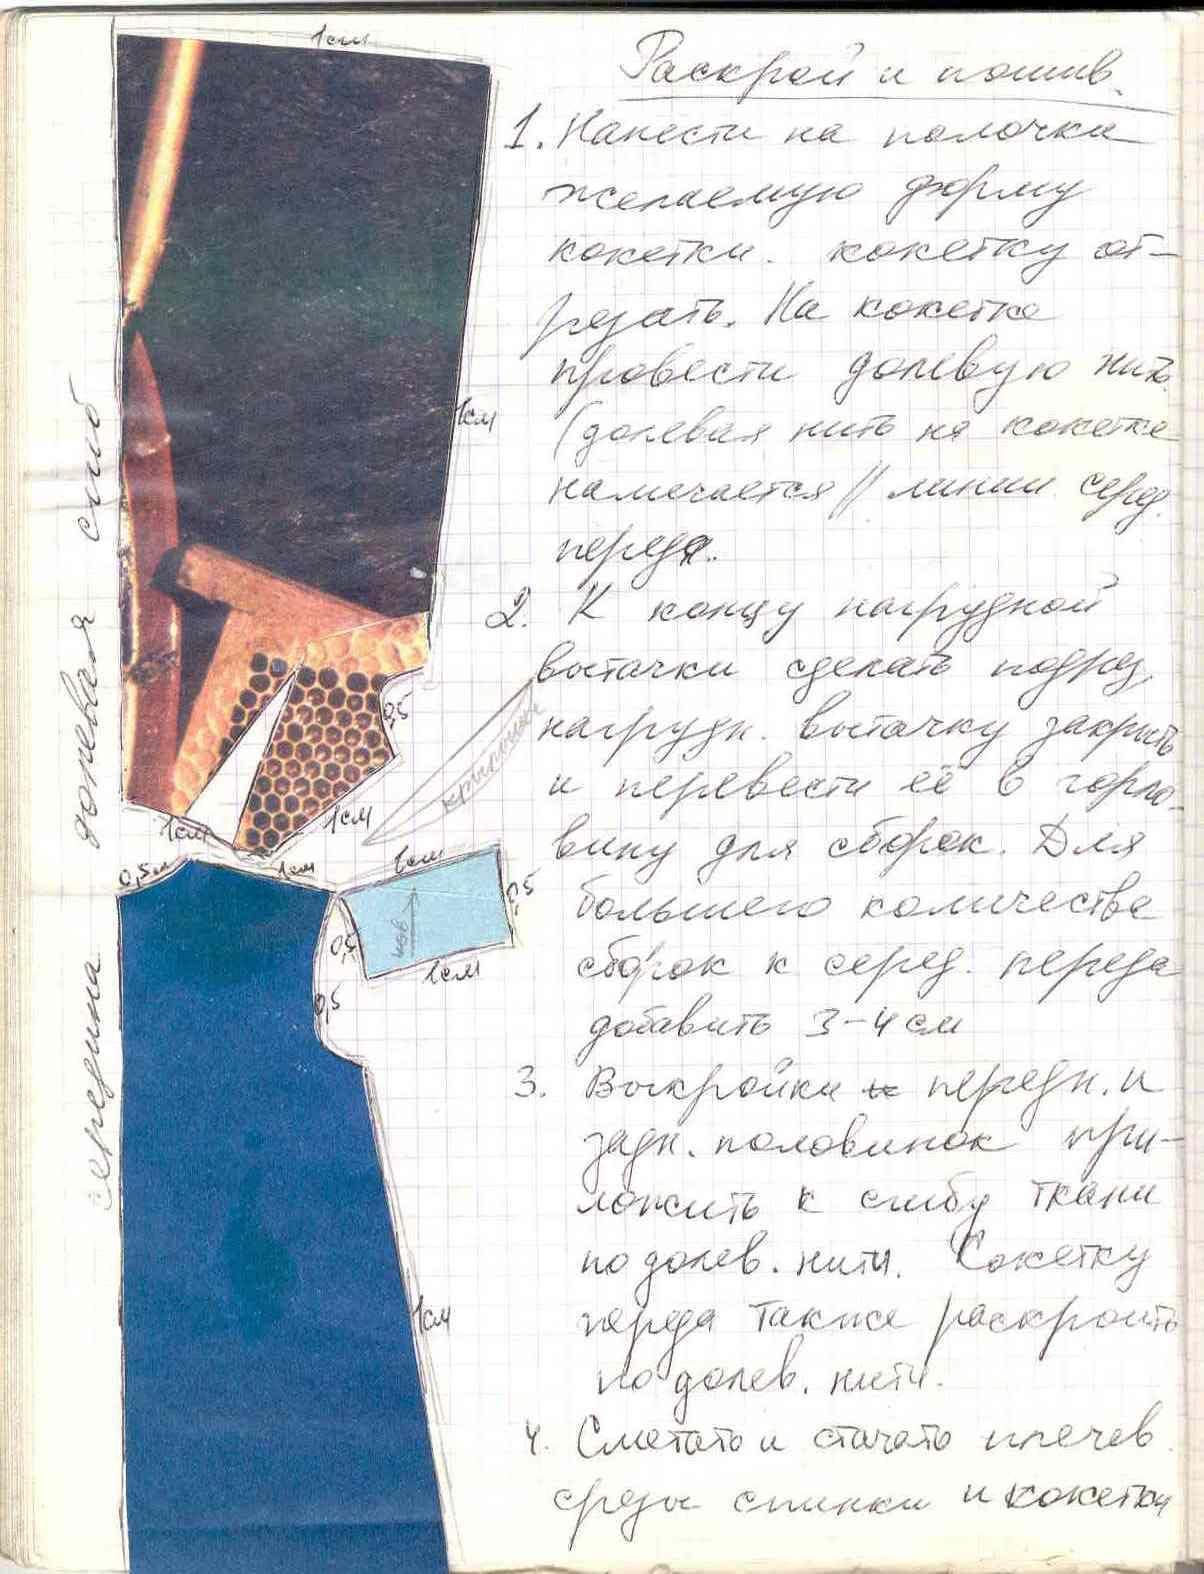 Раскрой и пошив.
1. Нанести на полочки
желаемую форму
кокетки. кокетку от-
резать. На кокетке
провести долевую нить
(долевая нить на кокетке
намечается // линии серед.
переда.
2. К концу нагрудной
вытачки сделать подрез,
нагрудн. вытачку закрыть
и перевести её в горло-
вину для сборок. Для
большего количества
сборок к серед. переда
добавить 3-4 см
3. Выкройки передн. и
задн. половинок при-
ложить к сгибу ткани
по долев. нити. Кокетку
переда также раскроить
по долев. нити.
4. Сметать и стачать плечев.
срезы спинки и кокетки
1см
1см
0,5
1см
1см
крылышко
0,5см
1см
1см
0,5
0,5
1см
0,5
1см
середина долевая сгиб